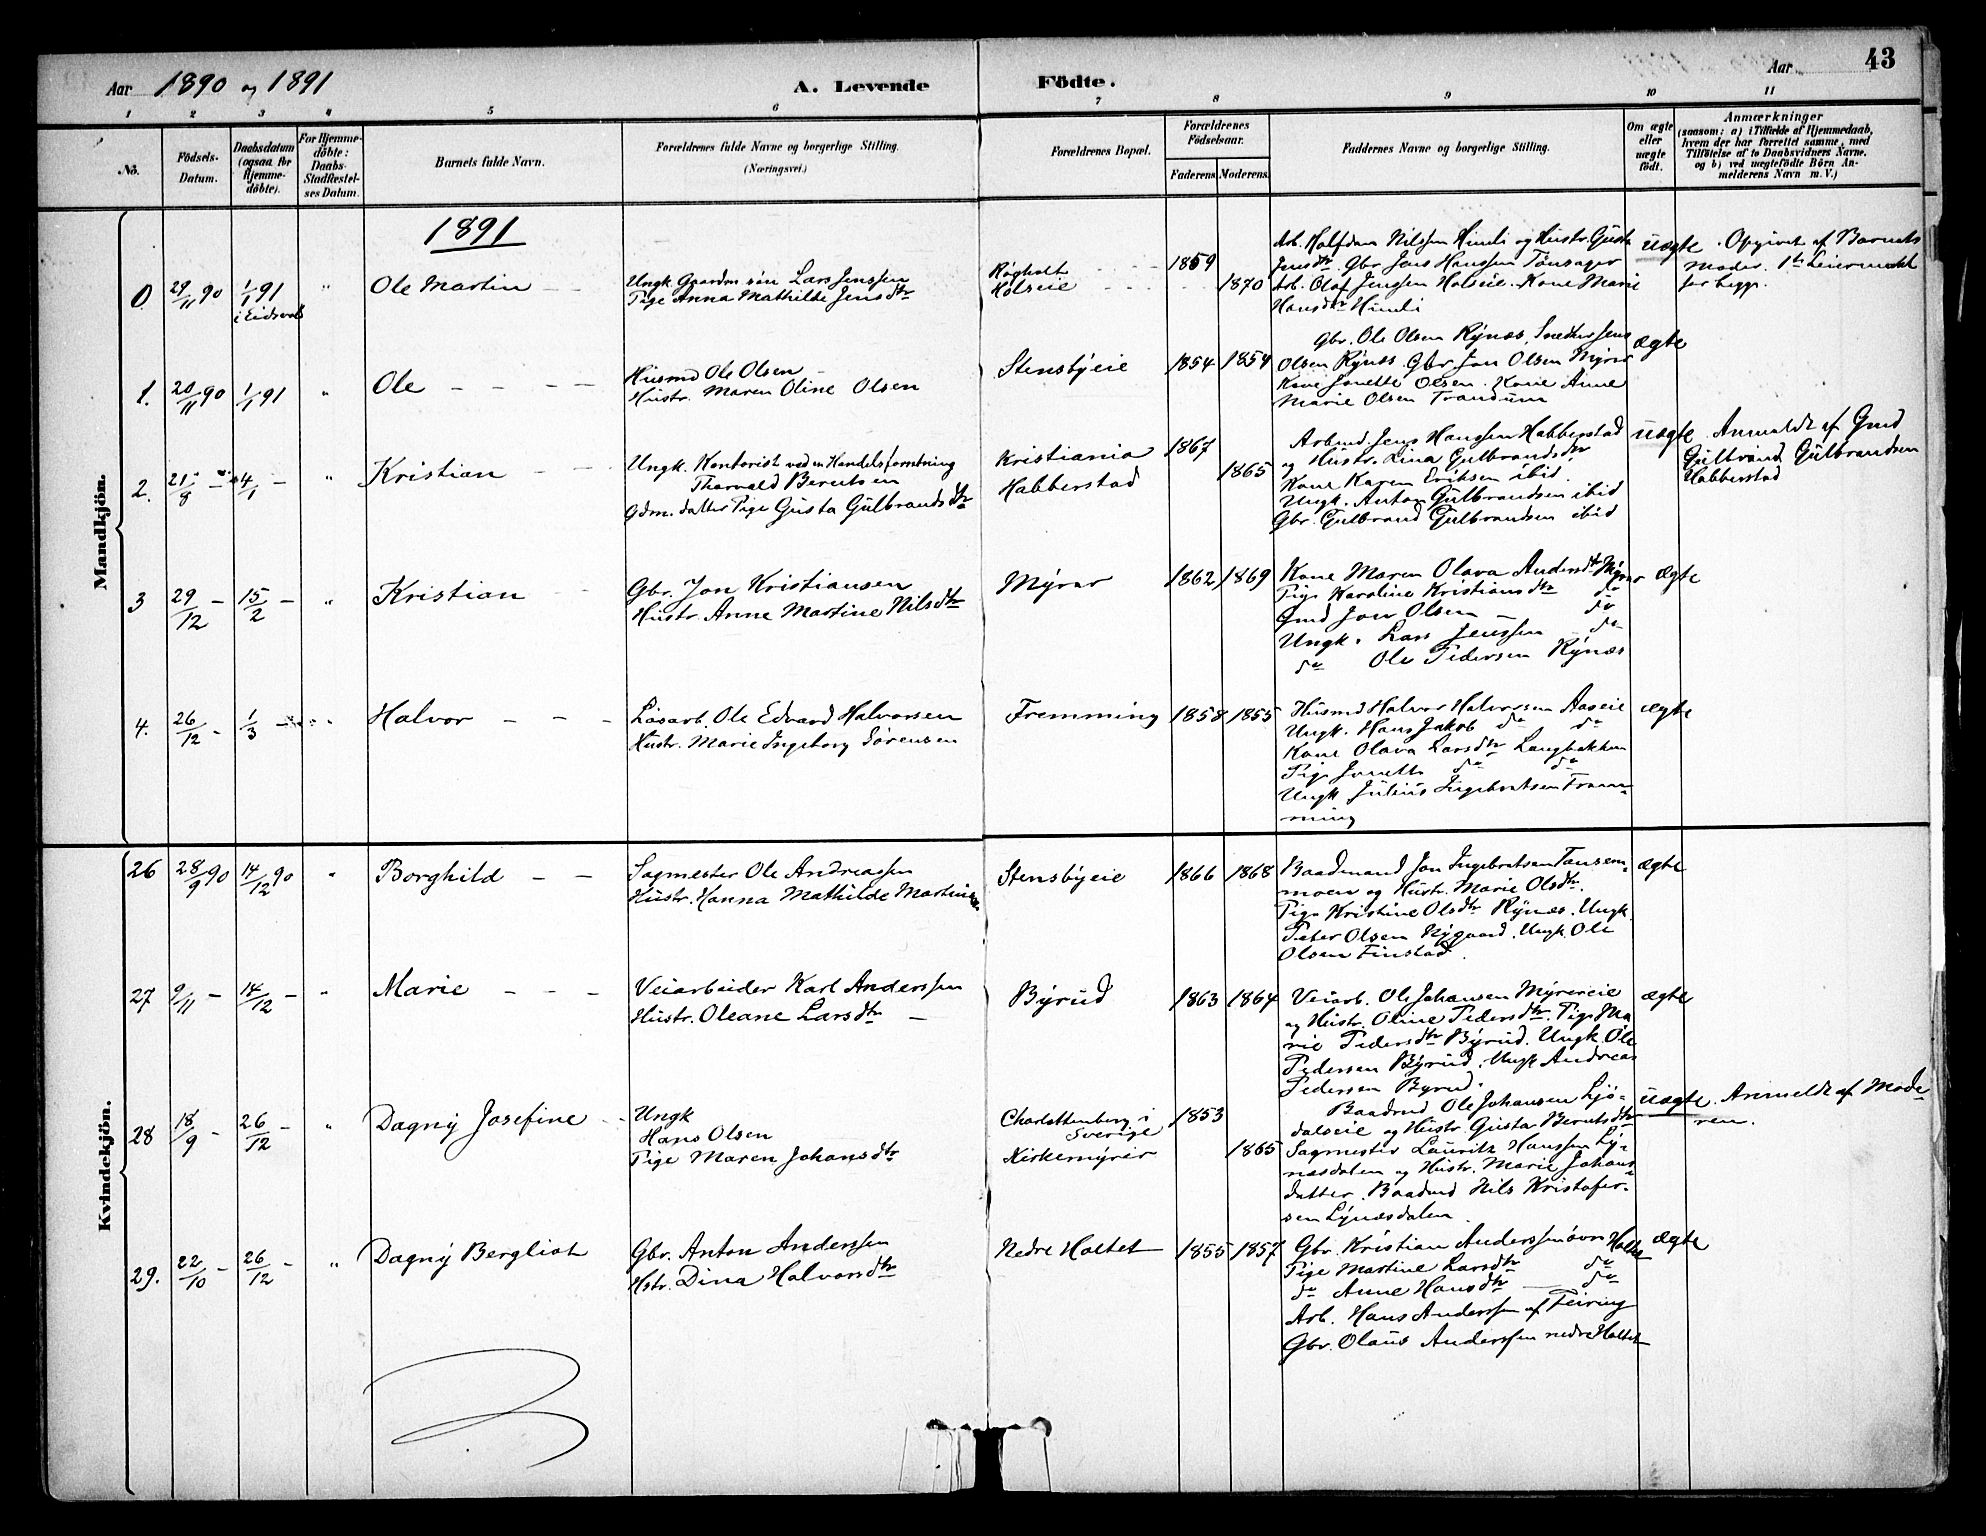 Aar 1890 og 1891 A. Levende Födte. Aar 43
1 2 3 4 5 6 7 8 9 10 11
No. Födsels-Datum. Daabsdatum (ogsaa for Hjemme-döbte). For Hjemme-döbte: Daabs-Stadfæstel-ses Datum. Barnets fulde Navn. Forældrenes fulde Navne og borgerlige Stilling. (Næringsvei.) Forældrenes Bopæl. Forældrenes Födselsaar. Faderens. Moderens. Faddernes Navne og borgerlige Stilling. Om ægte eller uægte födt. Anmærkninger (saasom: a) i Tilfælde af Hjemmedaab, hvem der har forrettet samme, med Tilföielse af to Daabsvidners Navne, og b) ved uægtefödte Börn An-melderens Navn m. V.)
Mandkjön.
1891
0. 29/11 90 1/1 91 i Eidsvold " Ole Martin
Ungk. Gaardm. sön Lars Jenssen
Pige Anna Mathilde Jensdtr
Røgholt
Holseie
1859 1870
Arb. Halfdan Nilssen Himli og Hustr. Gusta
Jensdtr. Gbr. Jens Hanssen Tønsager
Arb. Olaf Jenssen Holseie. Kone Marie
Hansdtr Himli
uægte
Opgivet af Barnets
Moder. 1ste Leiermaal
for begge.
1. 20/11 90 1/1 91 " Ole
Husmd Ole Olsen
Hustr. Maren Oline Olsen
Stensbyeie 1854 1854
Gbr. Ole Olsen Rynæs, Snedker Jens
Olsen Rynæs. Gbr. Jon Olsen Myrer
Kone Jonette Olsen. Kone Anne
Marie Olsen Trandum
ægte
2. 21/8 - 4/1 - " Kristian
Ungk. Kontorist ved en Handelsforretning
Thorvald Berntsen
Gdm. datter Pige Gusta Gulbrandsdtr
Kristiania
Habberstad
1867 1865
Arbmd. Jens Hanssen Habberstad
og Hustr. Lina Gulbrandsdtr
Kone Karen Eriksen ibid.
Ungk. Anton Gulbrandsen ibid
Gbr. Gulbrand Gulbrandsen ibid
uægte
Anmeldt af Gmd
Gulbrand Gulbrandsen
Habberstad
3 29/12 - 15/2 - " Kristian
Gbr. Jon Kristiansen
Hustr. Anne Martine Nilsdtr
Myrer 1862 1869
Kone Maren Olava Andersdtr Myrer
Pige Karoline Kristiansdtr do
Gmd Jon Olsen - do
Ungk. Lars Jenssen do
do Ole Pedersen Rynæs
ægte
4. 26/12 - 1/3 - " Halvor
Løsarb. Ole Edvard Halvorsen
Hustr. Marie Ingeborg Sørensen
Fremming 1858 1855
Husmd Halvor Halvorsen Aaseie
Ungk. Hans Jakob do do
Kone Olava Larsdtr Langbakken
Pige Jonette do do
Ungk Julius Ingebretsen Frem-
ming
ægte
Kvindekjön.
26 28/9 90 14/12 90 " Borghild
Sagmester Ole Andreassen
Hustr. Hanna Mathilde Martinsen
Stensbyeie 1866 1868
Baadmand Jon Ingebretsen Tansem-
moen og Hustr. Marie Olsdtr.
Pige Kristine Olsdtr Rynæs. Ungk.
Peter Olsen Nygaard. Ungk. Ole
Olsen Finstad.
ægte
27 9/11 - 14/12 - " Marie
Veiarbeider Karl Anderssen
Hustr. Oleane Larsdtr
Byrud 1863 1864
Veiarb. Ole Johansen Myrereie
og Hustr. Oline Pedersdtr. Pige Ma-
rie Pedersdtr Byrud. Ungk. Ole
Pedersen Byrud. Ungk Andreas
Pedersen Byrud.
ægte
28 18/9 - 26/12 - " Dagny Josefine
Ungk
Hans Olsen
Pige Maren Johansdtr
Charlottenberg i
Sverige
Kirkemyrer
1853 1865
Baadmd Ole Johansen Ljö-
dalseie og Hustr. Gusta Berntsdtr
Sagmester Lauritz Hanssen Ly-
næsdalen og Hustr. Marie Johans-
datter. Baadmd Nils Kristofer-
sen Lynæsdalen.
uægte
Anmeldt af Mode-
ren.
29. 22/10 - 26/12 - " Dagny Bergliot
Gbr. Anton Anderssen
Hstr. Dina Halvorsdtr
Nedre Holtet 1855 1857
Gbr. Kristian Anderssen øvre Holtet
Pige Martine Larsdtr do
do Anne Hansdtr do
Arb. Hans Anderssen af Feiring
Gbr. Olaus Anderssen nedre Holtet
ægte